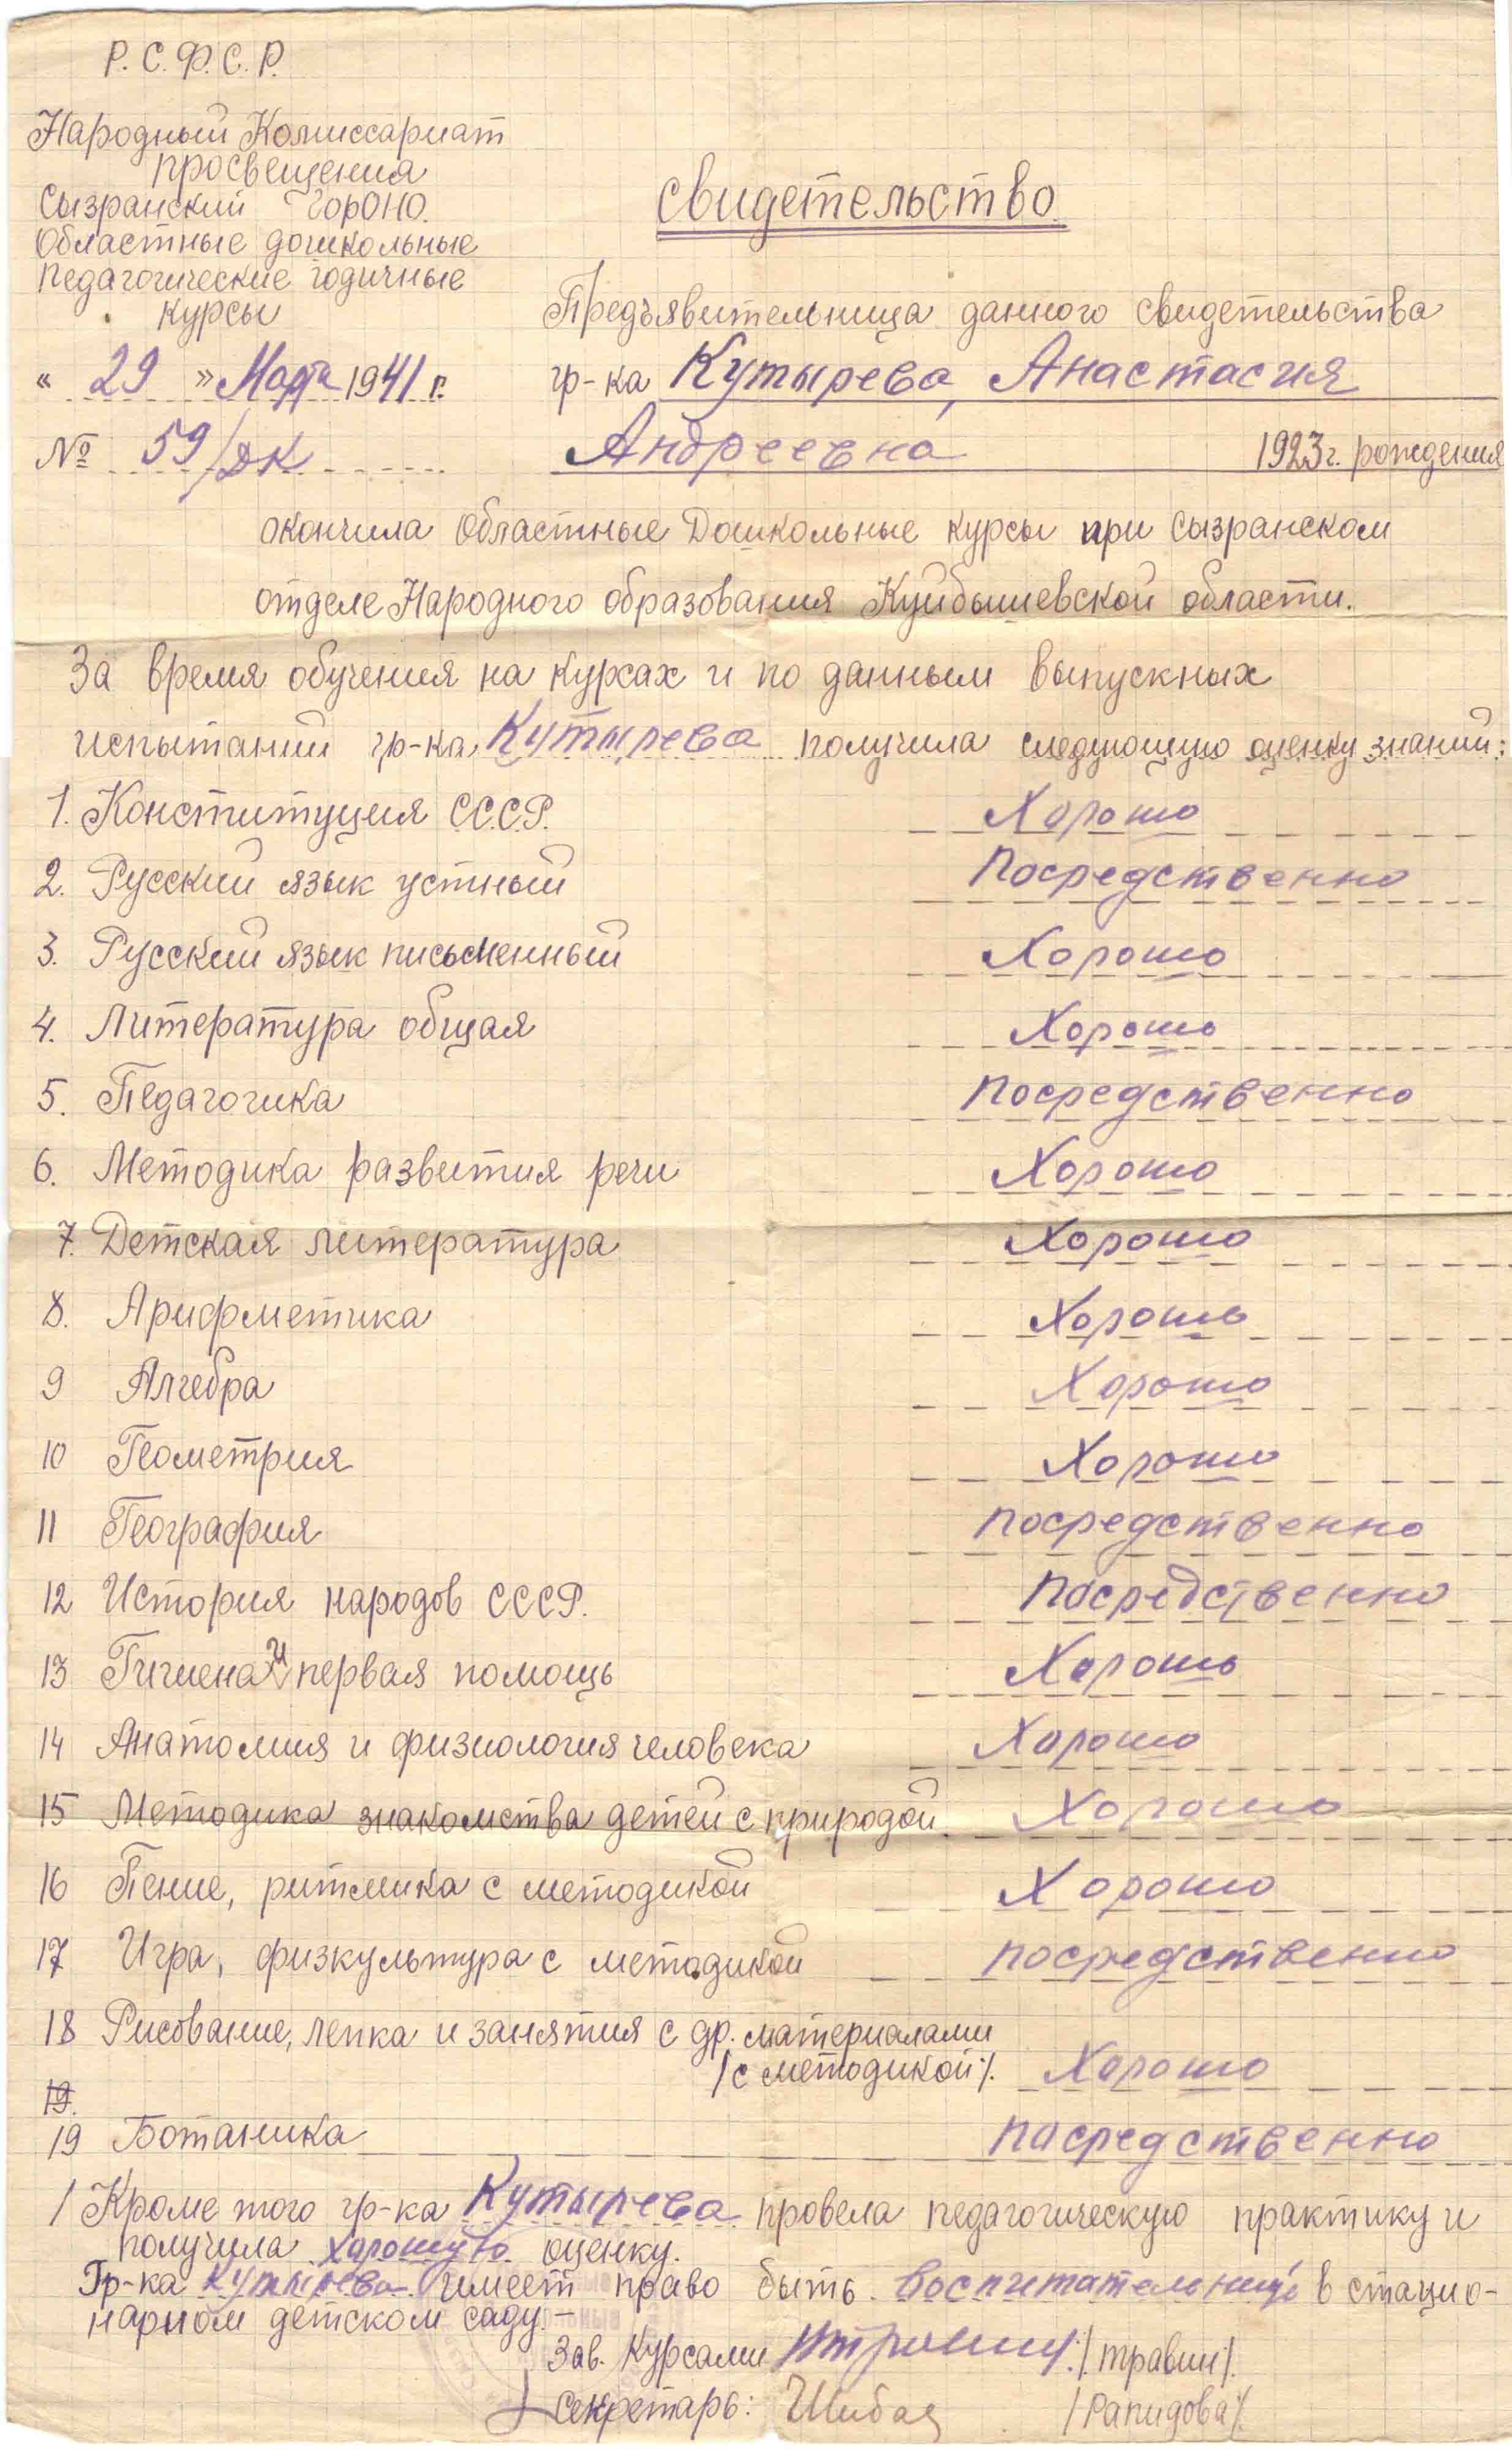 Р. С. Ф. С. Р.
Народный Комиссариат
просвещения
Сызранский ГорОНО.
Областные дошкольные
педагогические годичные
курсы
« 29 » Марта 1941 г.
№ 59/ДК
Свидетельство
Предъявительница данного свидетельства
гр-ка Кутырева, Анастасия
Андреевна 1923 г. рождения
окончила Областные Дошкольные курсы при Сызранском
отделе Народного образования Куйбышевской области.
За время обучения на курсах и по данным выпускных
испытаний гр-ка Кутырева получила следующую оценку знаний:
1. Конституция С.С.С.Р. Хорошо
2. Русский язык устный Посредственно
3. Русский язык письменный Хорошо
4. Литература общая Хорошо
5. Педагогика Посредственно
6. Методика развития речи Хорошо
7. Детская литература Хорошо
8. Арифметика Хорошо
9 Алгебра Хорошо
10 Геометрия Хорошо
11 География Посредственно
12 История народов СССР. Посредственно
13 Гигиена и первая помощь Хорошо
14 Анатомия и физиология человека Хорошо
15 Методика знакомства детей с природой Хорошо
16 Пение, ритмика с методикой Хорошо
17 Игра, физкультура с методикой Посредственно
18 Рисование, лепка и занятия с др. материалами
/с методикой/. Хорошо
19.
19 Ботаника Посредственно
/ Кроме того гр-ка Кутырева провела педагогическую практику и
получила хорошую оценку.
Гр-ка Кутырева имеет право быть воспитательницей в стацио-
нарном детском саду.—
Зав. Курсами /Травин/.
Секретарь: /Рапидова/.